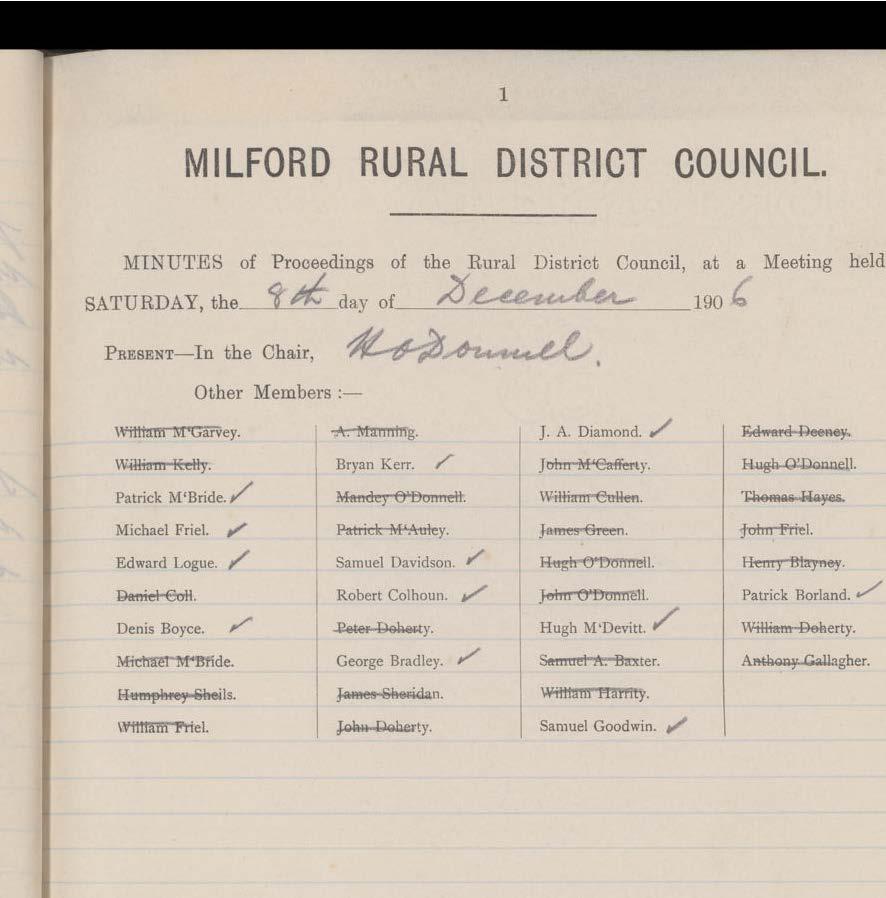 1
MILFORD RURAL DISTRICT COUNCIL.
MINUTES of Proceedings of the Rural District Council, at a Meeting held
SATURDAY, the 8th day of December 1906
PRESENT—In the Chair, H O Donnell.
Other Members :—
William M‘Garvey.
William Kelly.
Patrick M‘Bride. ✓
Michael Friel. ✓
Edward Logue. ✓
Daniel Coll.
Denis Boyce. ✓
Michael M‘Bride.
Humphrey Sheils.
William Friel.
A. Manning.
Bryan Kerr. ✓
Mandey O’Donnell.
Patrick M‘Auley.
Samuel Davidson. ✓
Robert Colhoun. ✓
Peter Doherty.
George Bradley. ✓
James Sheridan.
John Doherty.
J. A. Diamond. ✓
John M‘Cafferty.
William Cullen.
James Green.
Hugh O’Donnell.
John O’Donnell.
Hugh M‘Devitt. ✓
Samuel A. Baxter.
William Harrity.
Samuel Goodwin. ✓
Edward Deeney.
Hugh O’Donnell.
Thomas Hayes.
John Friel.
Henry Blayney.
Patrick Borland. ✓
William Doherty.
Anthony Gallagher.